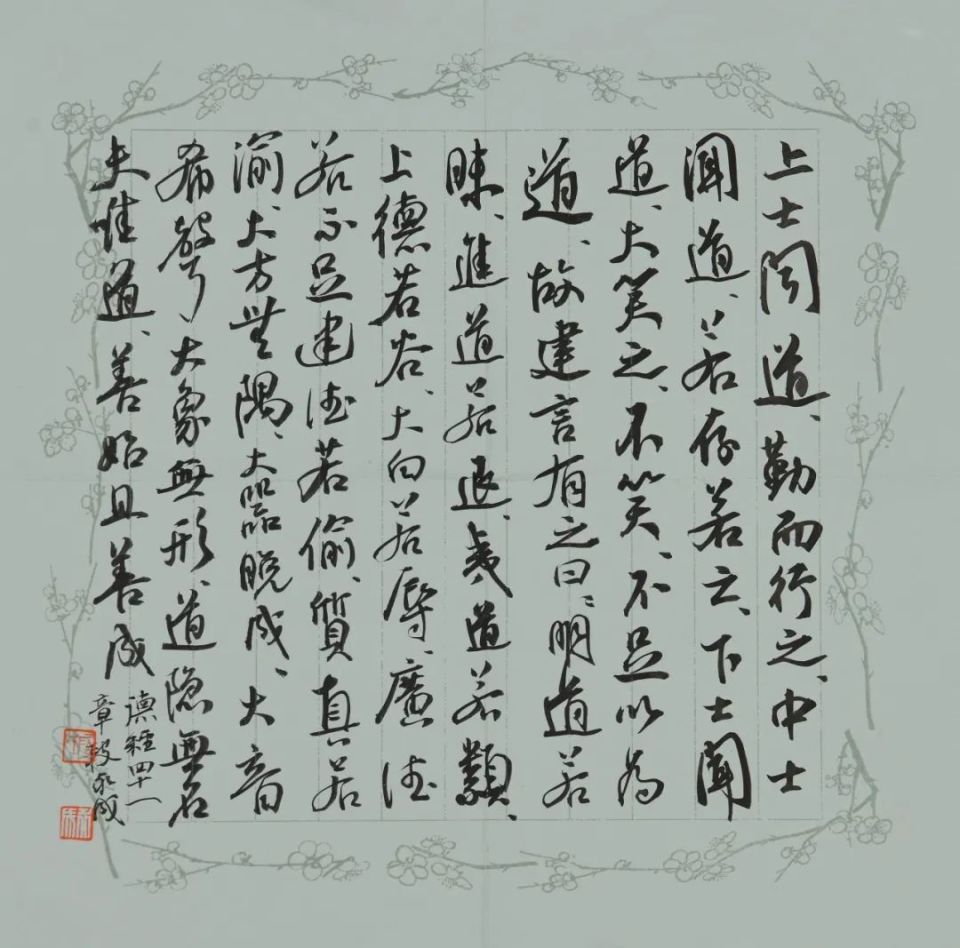 上士闻道、勤而行之、中士
闻道、若存若亡、下士闻
道、大笑之、不笑、不足以为
道、故建言有之曰、明道若
昧、進道若退、夷道若纇、
上德若谷、大白若辱、廣德
若不足建德若偷、質真若
渝、大方無隅、大器晚成、大音
希聲、大象無形、道隐無名
夫唯道、善始且善成
德經四十一
章